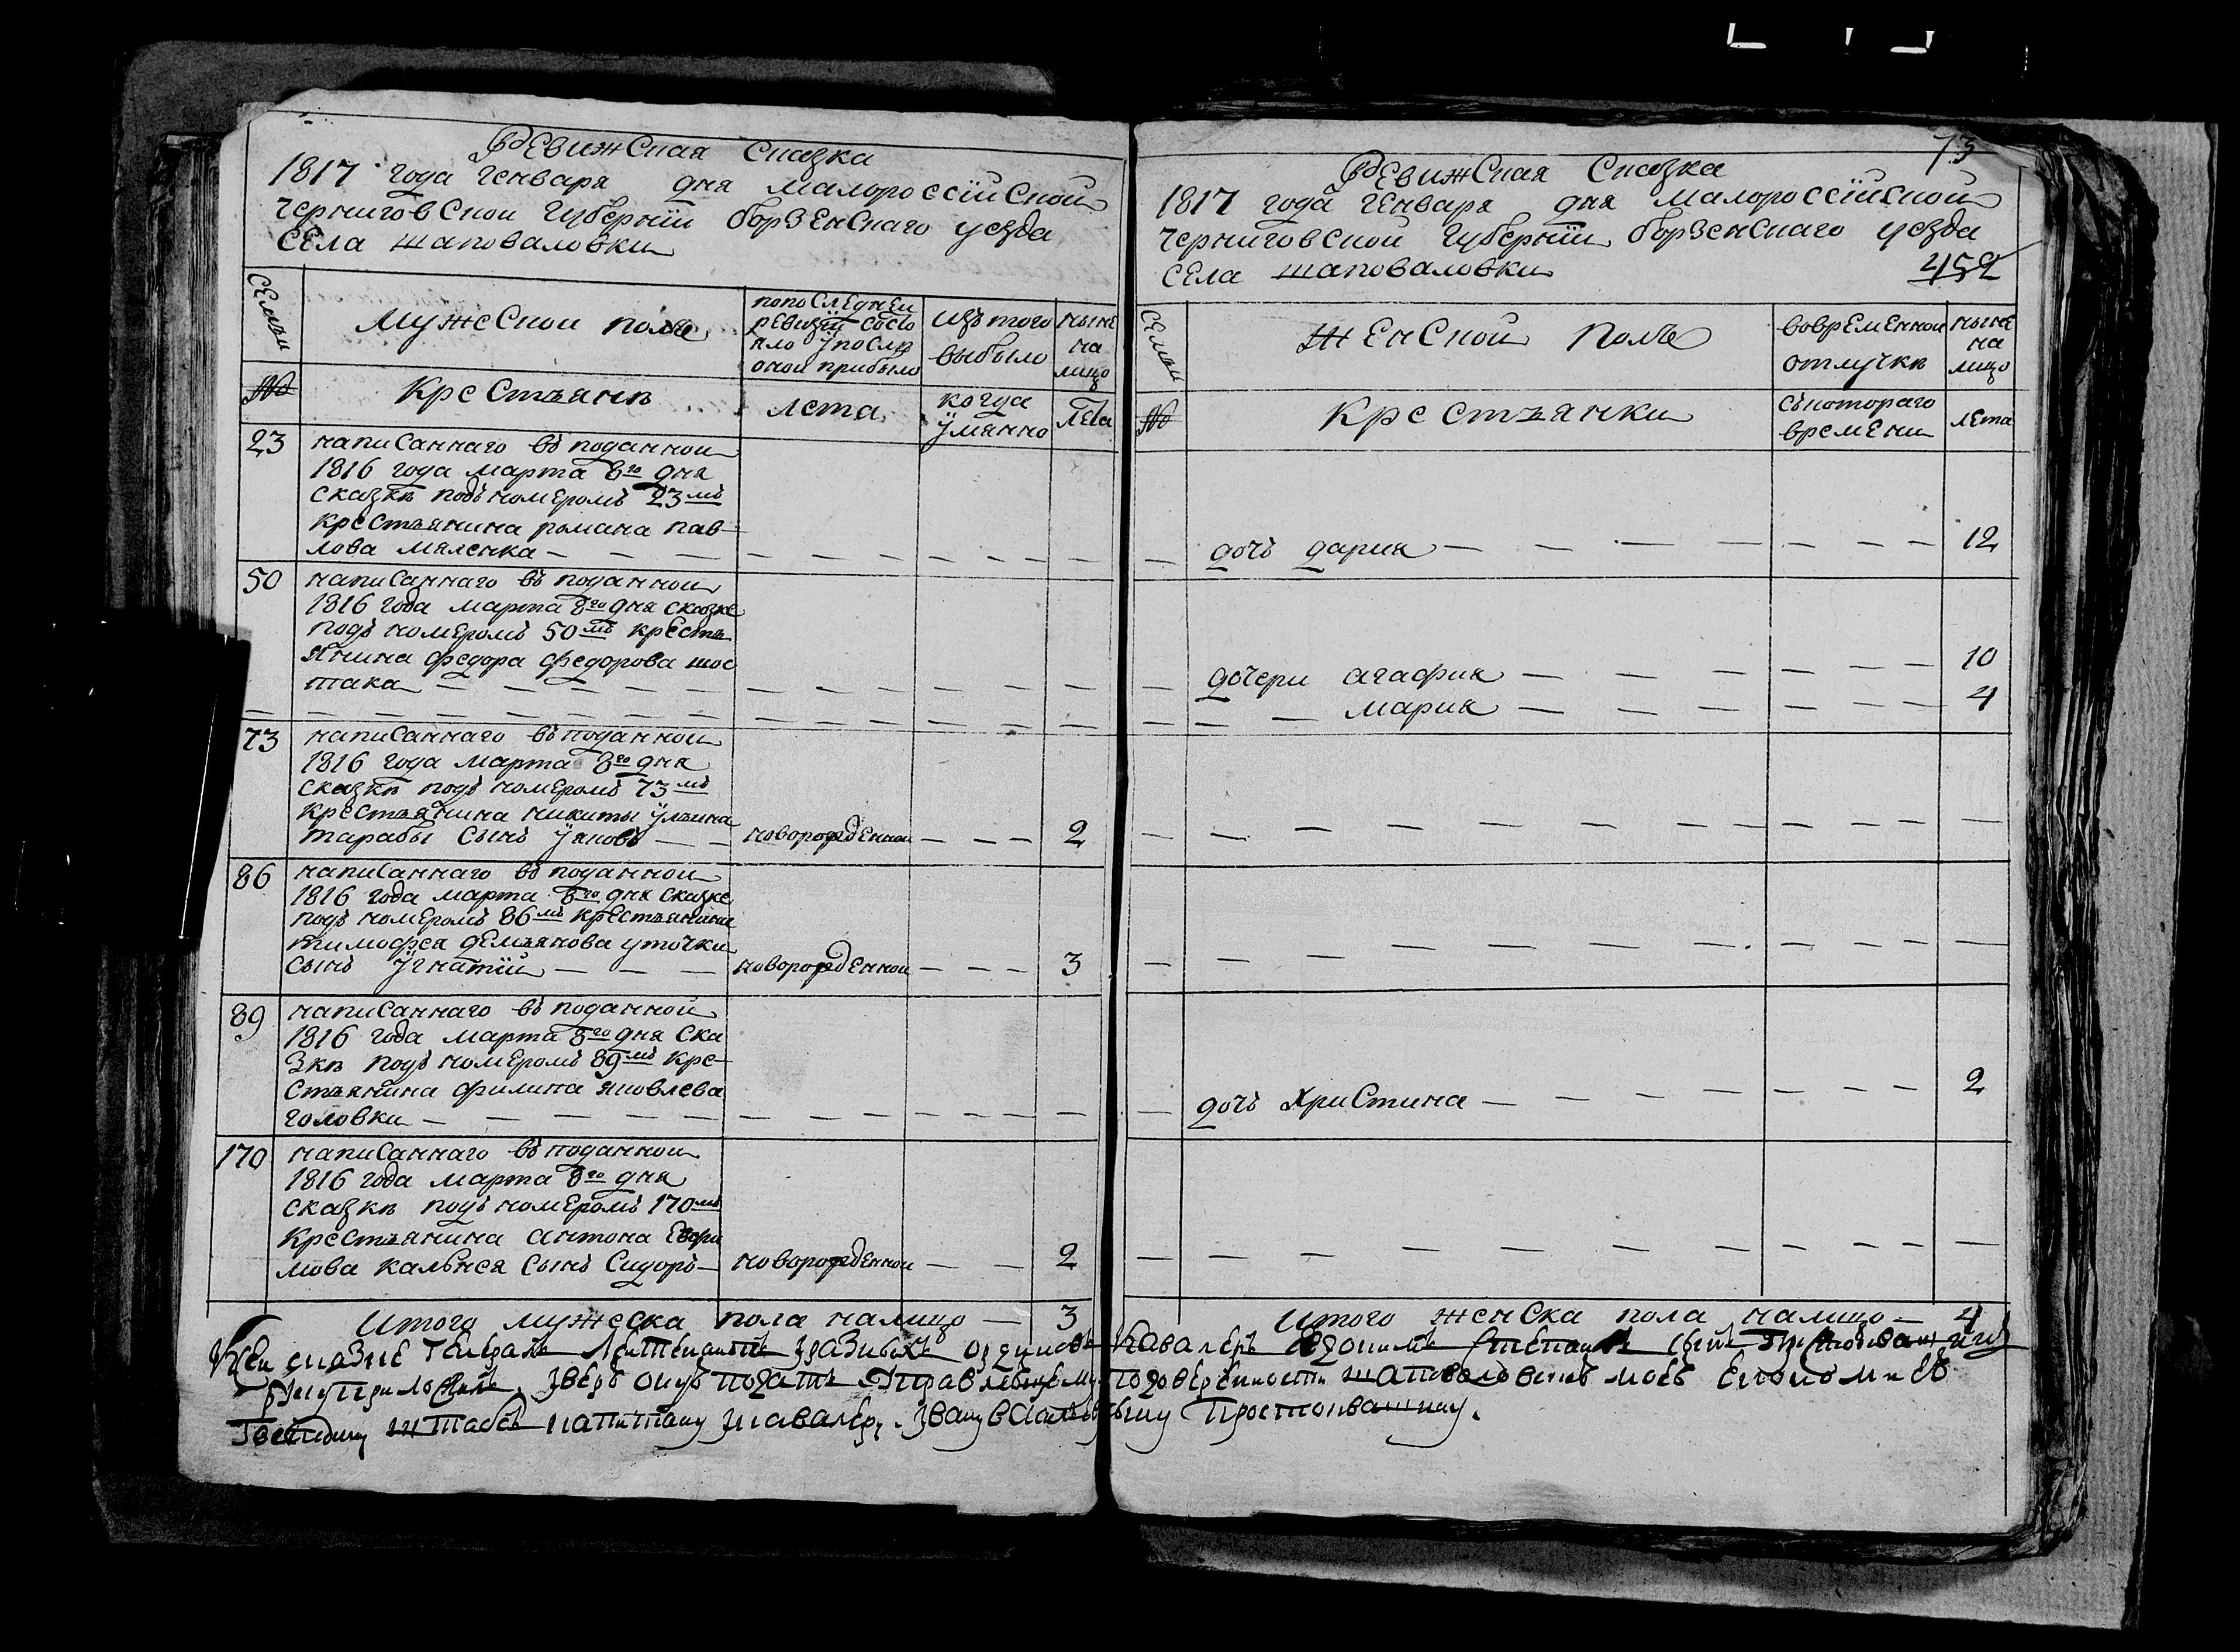 Ревижская сказка
1817 года генваря дня малороссїйской
черниговской губернїи борзенскаго уезда
села шаповаловки
семьи
мужеской полъ
попоследнеи
ревизїи состо
яло ӱпослѣ
оной прибыло
изътого
выбыло
ныне
на
лицо
№
Крестьянѣ
лета
когда
ӱмянно
лета
23
написаннаго въ поданной
1816 года марта 8го дня
сказкѣ подъ номеромъ 23мъ
крестьянина романа пав
лова мяленка
50
написаннаго въ поданной
1816 года марта 8го дня сказке
подъ номеромъ 50мъ кресть
янина федора федорова шос
така
73
написаннаго въ поданной
1816 года марта 8го дня
сказкѣ подъ номеромъ 73мъ
крестьянина никиты ӱльина
тарабы сынъ ӱяковъ
новорожденной
2
86
написаннаго въ поданной
1816 года марта 8го дня сказке
подъ номеромъ 86мъ крестьянина
тимофея демьянова уточки
сынъ ӱгнатїй
новорожденной
3
89
написаннаго въ поданной
1816 года марта 8го дня ска
зкѣ подъ номеромъ 89мъ кре
стьянина филипа яковлева
головки
170
написаннаго въ поданной
1816 года марта 8го дня
сказкѣ подъ номеромъ 170мъ
крестьянина антона Ефи
мова сынъ Сидоръ
новорожденной
2
Итого мужеска пола налицо 3
73
Ревижская Сказка
1817 года генваря дня малороссїйской
черниговской губернїи борзенскаго уезда
села шаповаловки
452
семьи
женской полъ
вовременной
отлучкѣ
ныне
на
лицо
№
Крестьянки
съкотораго
времени
лета
дочь дария 12
дочери агафия 10
мария 4
дочь Христина 2
Итого женска пола налицо 4
Ксей сказке Генералъ Лейтенантъ разныхъ орденовъ Кавалеръ Степановъ сынъ
руку приложилъ подать по доверенности моей
штабсъ капитану кавалеру